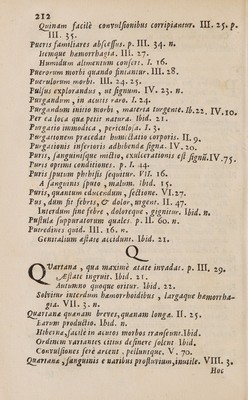 212
Quinam facilè convulſionibus corripiantur. III. 25. p.
III. 35.
Pueris familiares abſceſſus. p. III. 34. n.
Itemque hæmorrhagia. III. 27.
Humidum alimentum confert. I. 16.
Puerorum morbi quando finiantur. III. 28.
Puerulorum morbi. III. 24. 25.
Pulſus explorandus, ut ſignum. IV. 23. n.
Purgandum, in acutis raro. I. 24.
Purgandum initio morbi, materia turgente. Ib. 22. IV. 10.
Per ea loca quæ petit natura. Ibid. 21.
Purgatio immodica, periculoſa. I. 3.
Purgationem præcedat humectatio corporis. II. 9.
Purgationis inferioris adhibenda ſigna. IV. 20.
Puris, ſanguiniſque mictio, exulcerationis eſt ſignũ. IV. 75.
Puris optimi conditiones. p. I. 44.
Puris ſputum phthiſis ſequitur. VII. 16.
A ſanguinis ſputo, malum. ibid. 15.
Puris, quantum educendum, ſectione. VI. 27.
Pus, dum fit febris, & dolor, urgent. II. 47.
Interdum ſine febre, doloreque, gignitur. Ibid. n.
Puſtula ſuppuratorum quales. p. II. 60. n.
Putredines quid. III. 16. n.
Genitalium æſtate accidunt. Ibid. 21.
Q
Quartana, qua maximè ætate invadat. p. III. 29.
Æſtate ingruit. Ibid. 21.
Autumno quoque oritur. Ibid. 22.
Solvitur interdum hæmorrhoidibus, largaque hæmorrha-
gia. VII. 3. n.
Quartana quanam breves, quanam longæ. II. 25.
Earum productio. Ibid. n.
Hiberna, facilè in acutos morbos tranſeunt. Ibid.
Ordinum variantes citius deſinere ſolent Ibid.
Convulſiones ferè arcent, pelluntque. V. 70.
Quartanæ, ſanguinis e naribus profluvium, inutile. VIII. 3.
Hoc